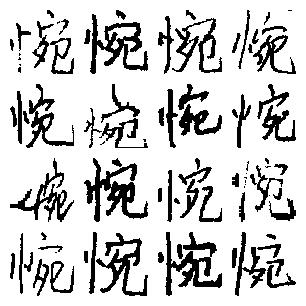 惋惋惋惋
惋惋惋惋
惋惋惋惋
惋惋惋惋